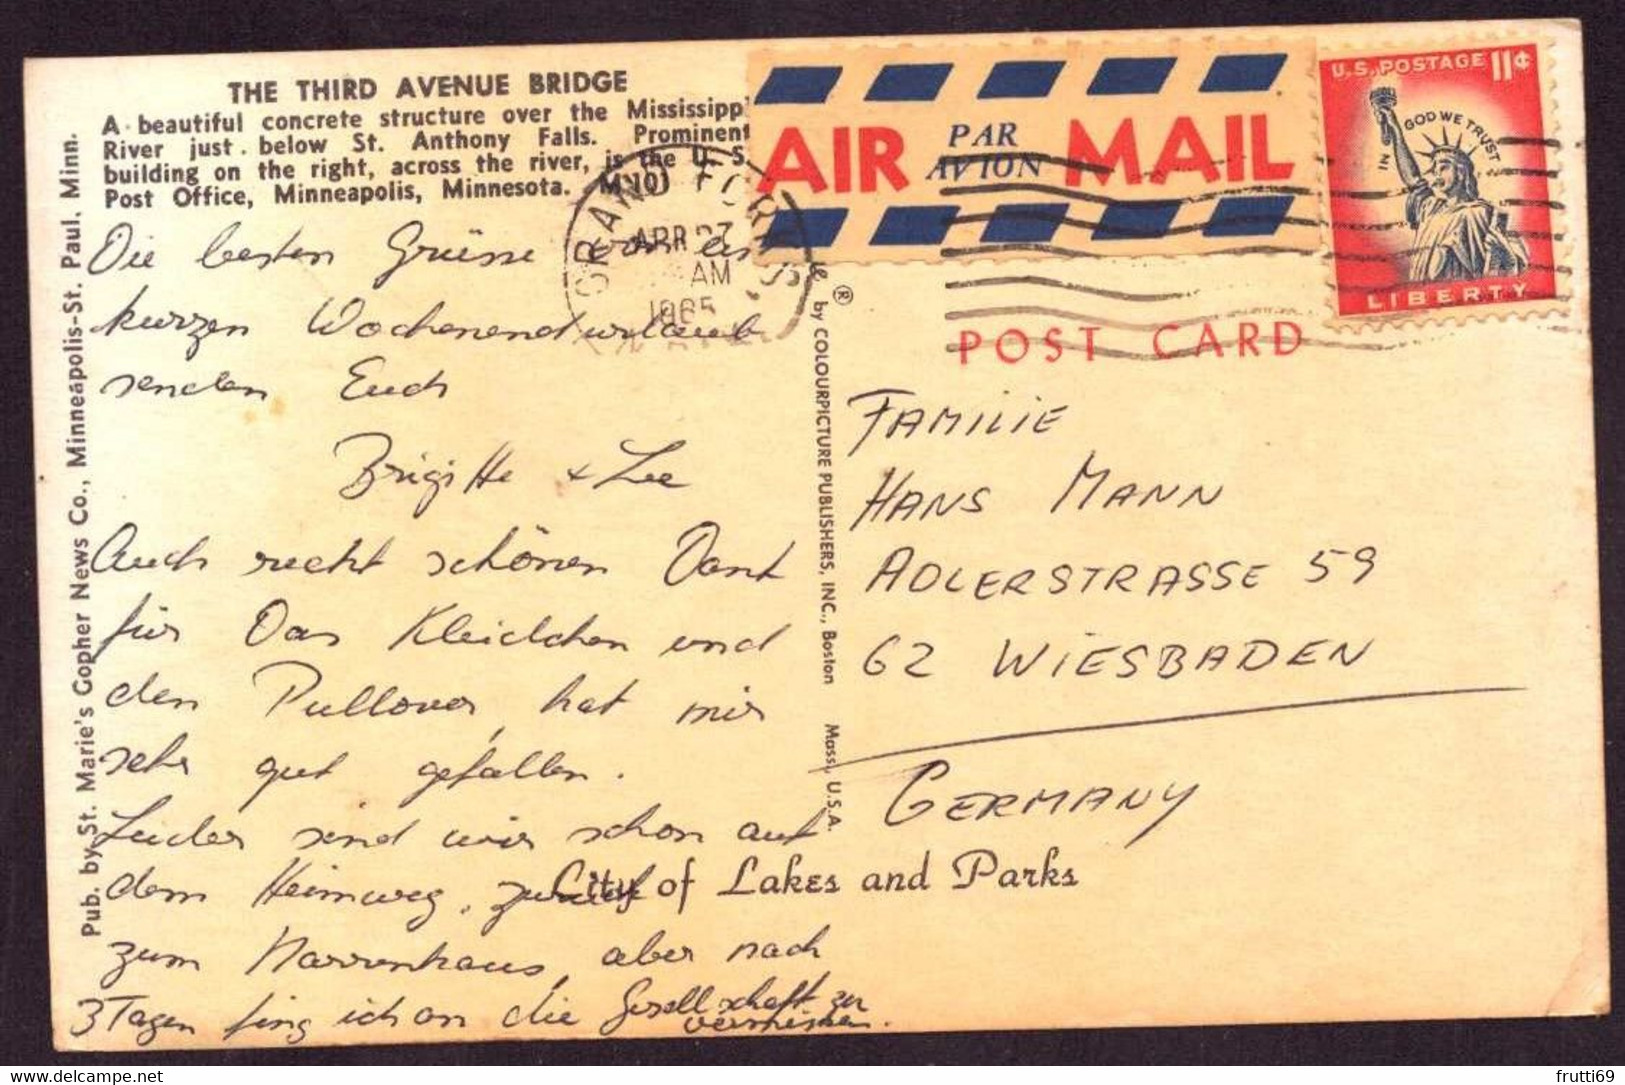 THE THIRD AVENUE BRIDGE
A beautiful concrete structure over the Mississipp
River just below St. Anthony Falls. Prominent
building on the right, across the river, is the U. S.
Post Office, Minneapolis, Minnesota. M 101
Pub. by St. Marie's Gopher News Co., Minneapolis-St. Paul, Minn.
Die besten Grüsse von ein
kurzen Wochenendurlaub
senden Euch
Brigitte + Lee
Auch recht schönen Dank
für Das Kleidchen und
den Pullover, hat mir
sehr gut gefallen.
Leider sind wir schon auf
dem Heimweg, zurück
zum Narrenhaus, aber nach
3 Tagen fing ich an die Gesellschaft zu
vermissen.
AIR PAR AVION MAIL
GRAND FORKS
APR 27
AM
1965
U.S. POSTAGE 11¢
IN GOD WE TRUST
LIBERTY
® by COLOURPICTURE PUBLISHERS, INC., Boston Mass., U.S.A.
POST CARD
FAMILIE
HANS MANN
ADLERSTRASSE 59
62 WIESBADEN
GERMANY
City of Lakes and Parks
frutti69